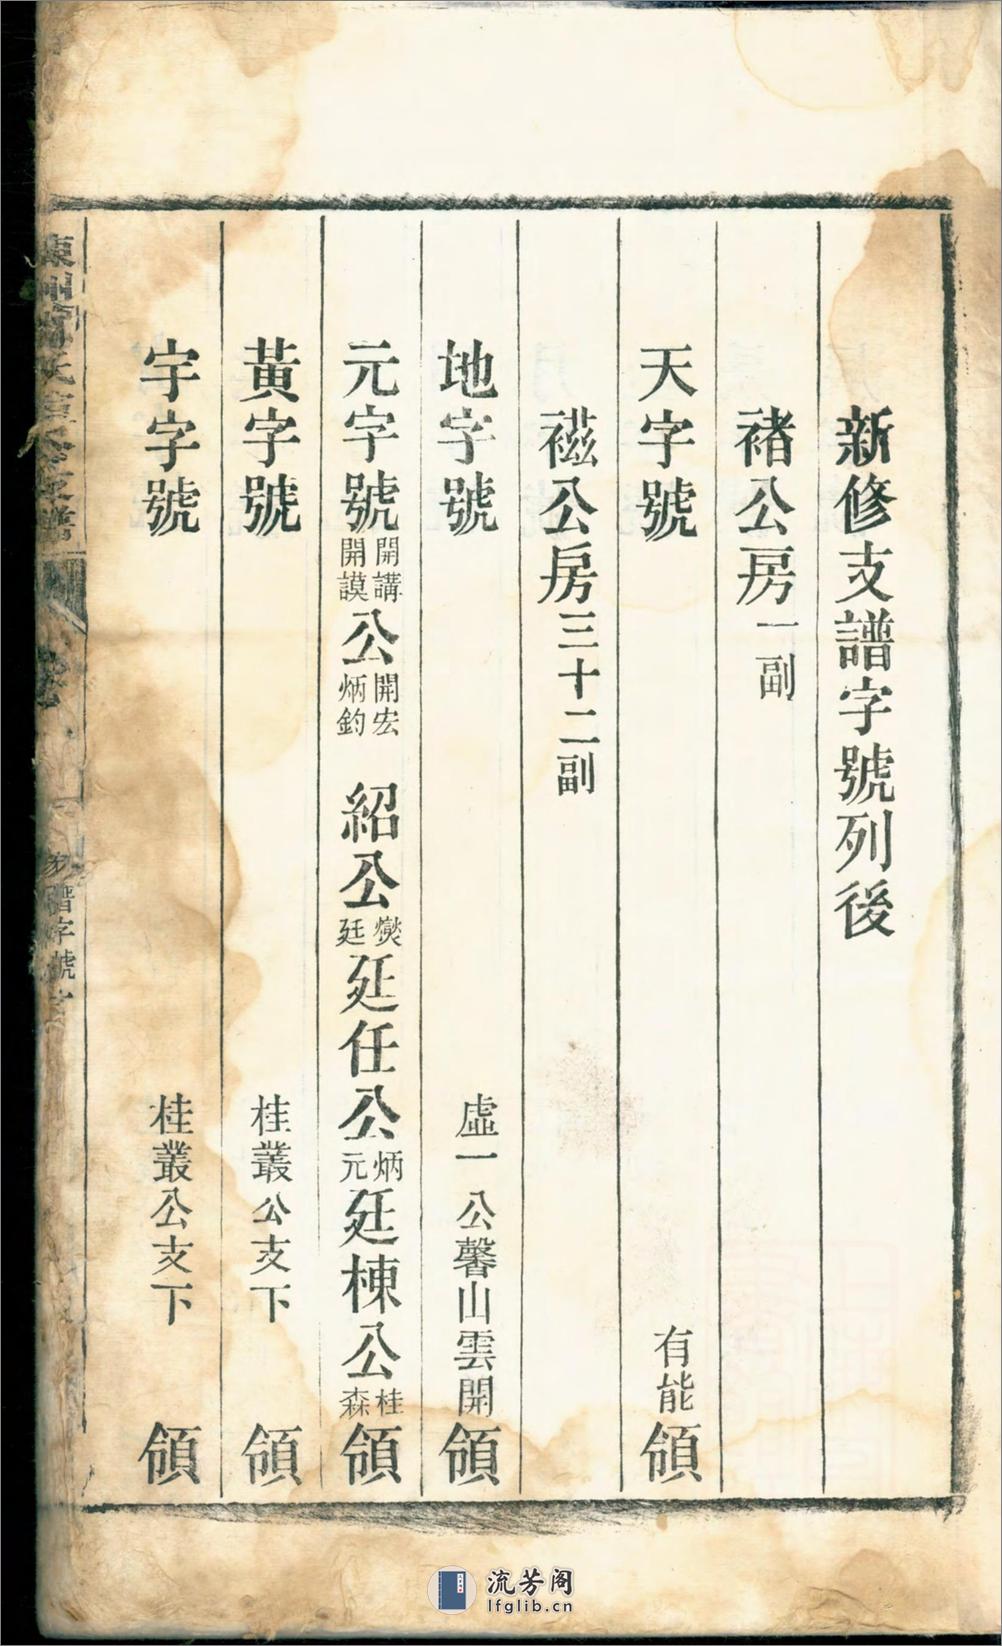 新修支譜字號列後
褚公房一副
天字號 有能領
禌公房三十二副
地字號 虛一公馨山雲開領
元字號開講開謨公開宏炳鈞 紹公爕廷延任公炳元廷棟公桂森領
黃字號 桂叢公支下領
宇字號 桂叢公支下領
譜字號
流芳阁
lfglib.cn